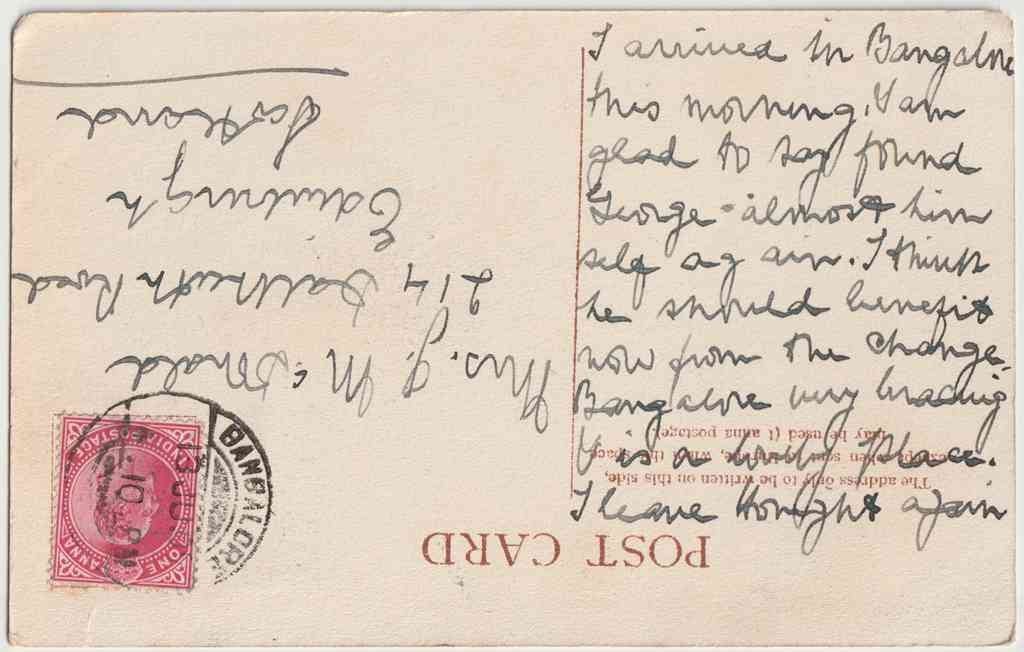 I arrived in Bangalore
this morning. I am
glad to say found
George almost him
self again. I think
he should benefit
now from the change.
Bangalore very bracing
& is a lovely place.
I leave tonight again
POST CARD
The address only to be written on this side,
except when sent inland, when the space
may be used (1 anna postage)
Mrs. J. McDonald
214 Dalkeith Road
Edinburgh
Scotland
BANGALORE
13 JU
10 PM
INDIA POSTAGE
ONE ANNA